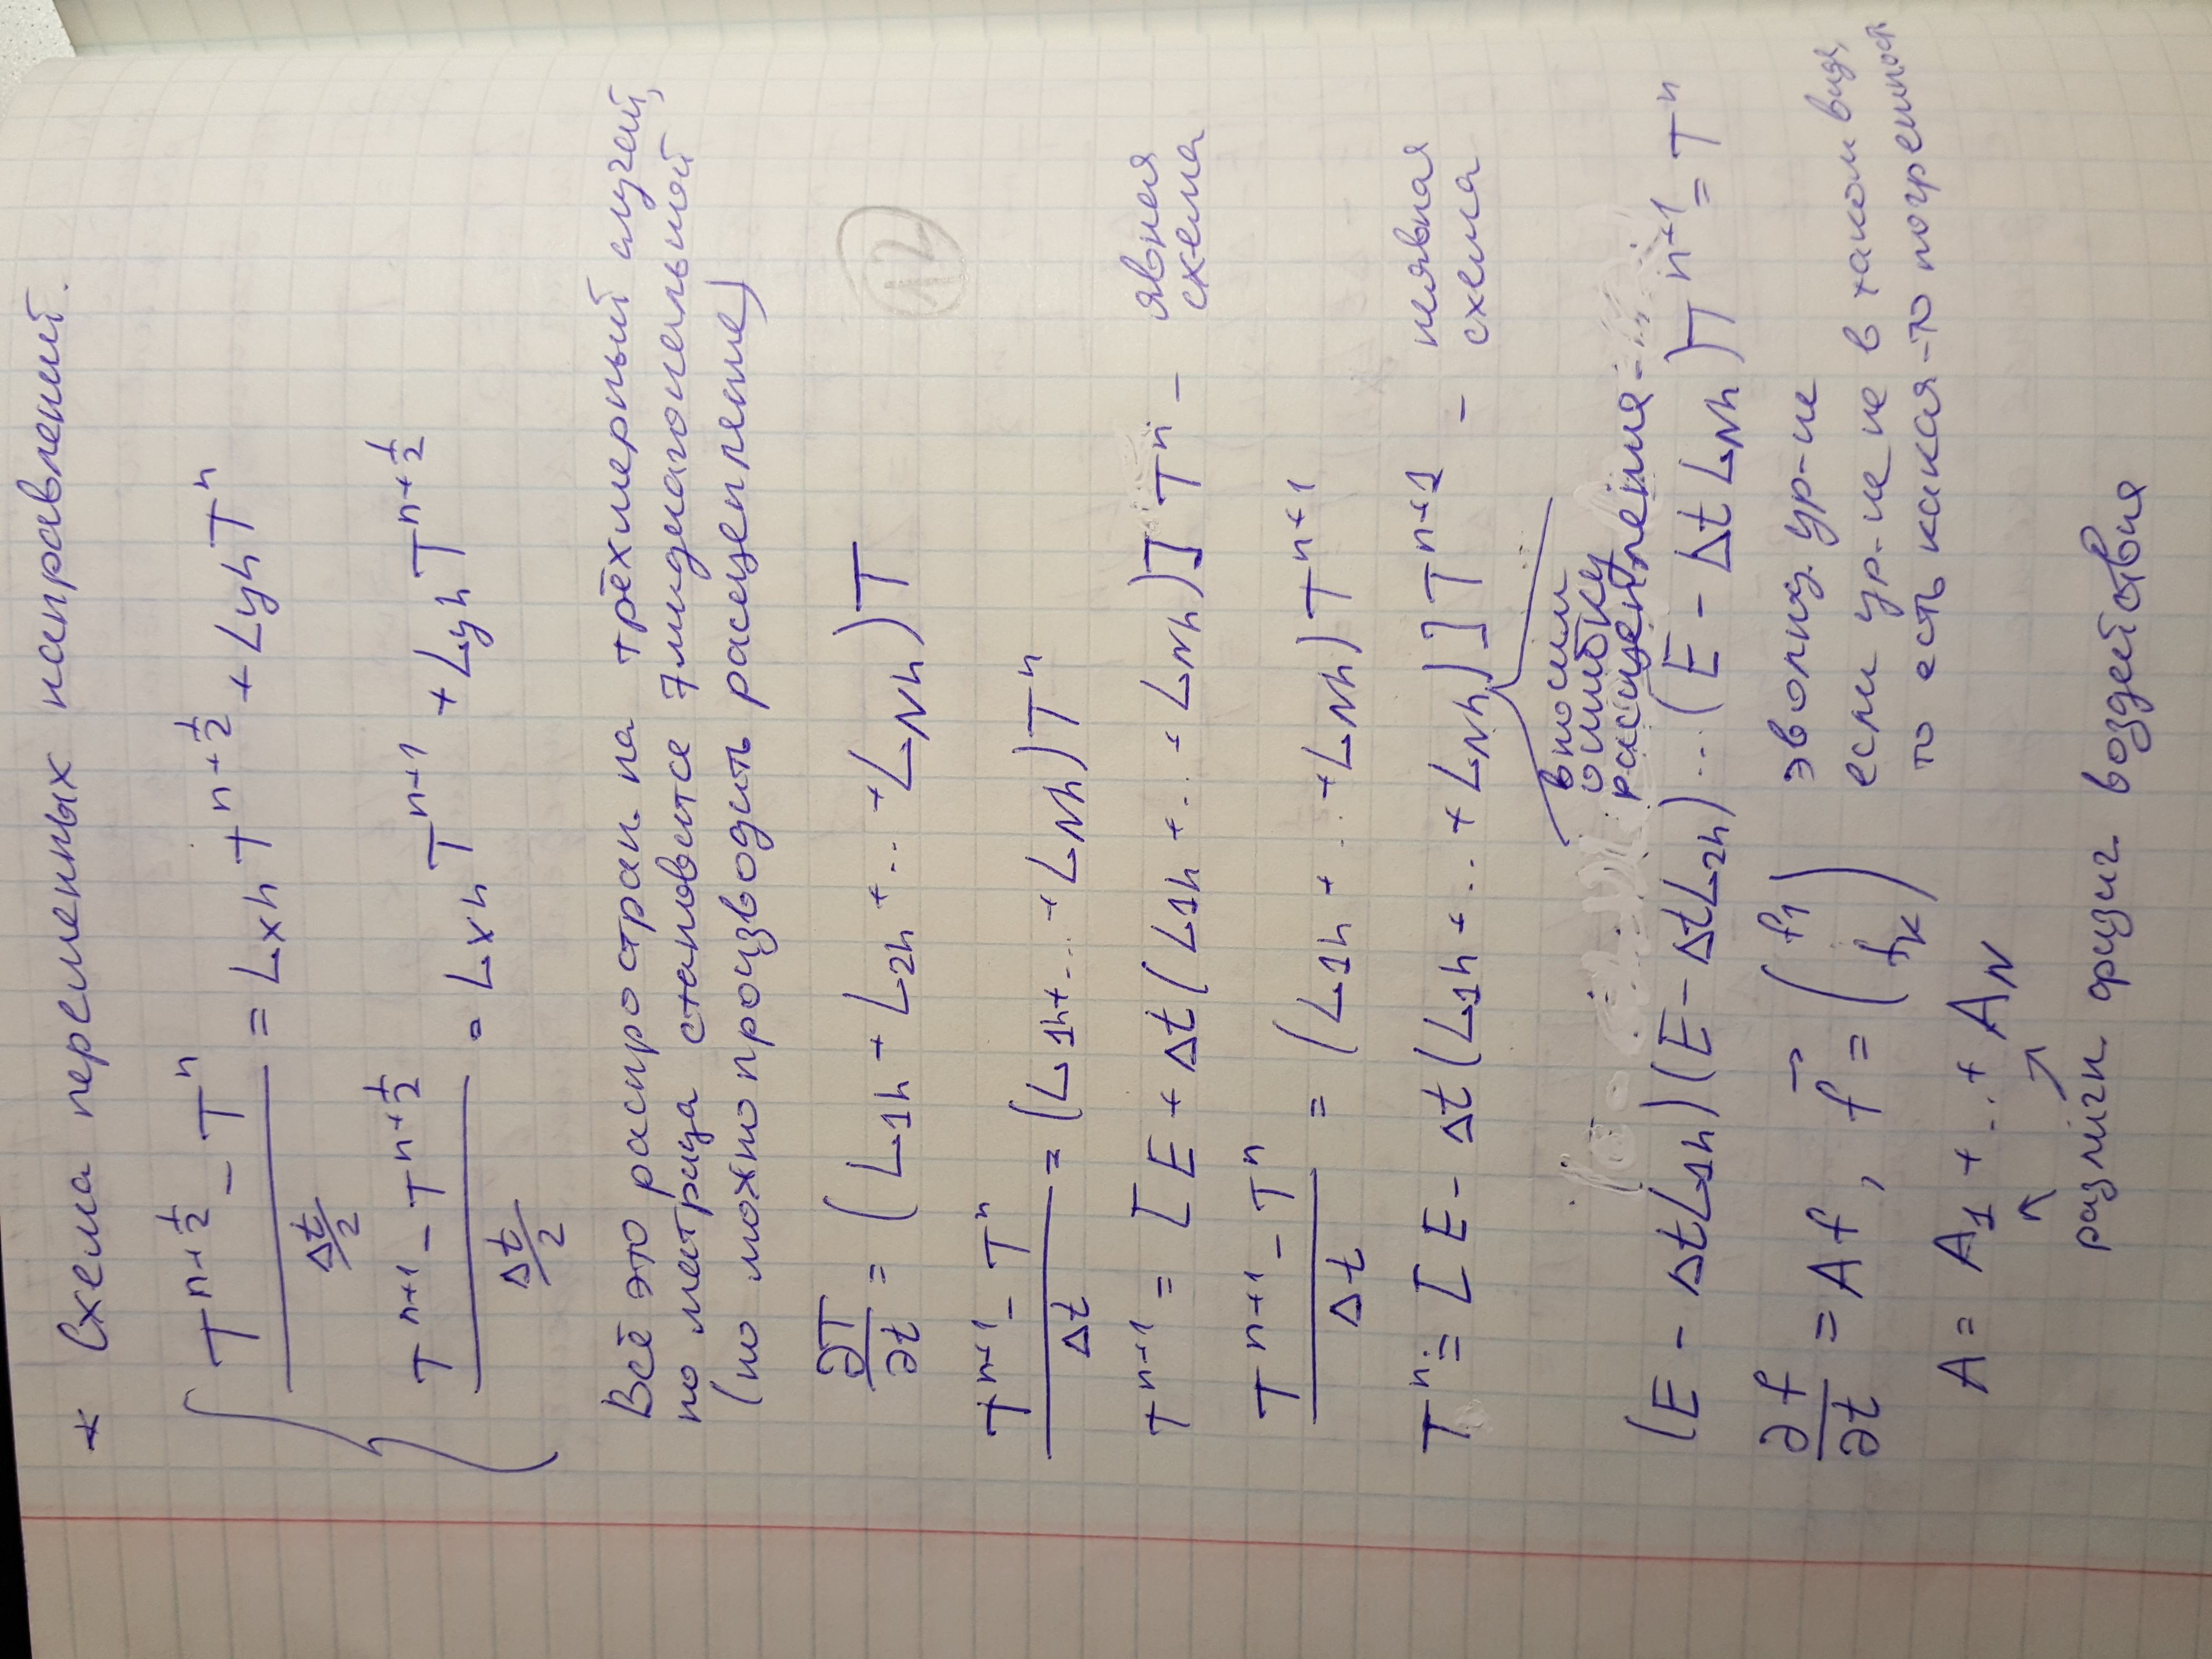 * Схема переменных направлений.
(T^{n+1/2} - T^n) / (Δt/2) = L_{xh} T^{n+1/2} + L_{yh} T^n
(T^{n+1} - T^{n+1/2}) / (Δt/2) = L_{xh} T^{n+1} + L_{yh} T^{n+1/2}
Всё это распростран. на трёхмерный случай,
но матрица становится 7мидиагональной
(но можно производить расщепление)
∂T/∂t = (L_{1h} + L_{2h} + ... + L_{Nh}) T
12
(T^{n+1} - T^n) / Δt = (L_{1h} + ... + L_{Nh}) T^n
T^{n+1} = [E + Δt (L_{1h} + ... + L_{Nh})] T^n - явная схема
(T^{n+1} - T^n) / Δt = (L_{1h} + ... + L_{Nh}) T^{n+1}
T^n = [E - Δt (L_{1h} + ... + L_{Nh})] T^{n+1} - неявная схема
вносим
ошибку
расщепление
(E - ΔtL_{1h})(E - ΔtL_{2h}) ... (E - ΔtL_{Nh}) T^{n+1} = T^n
∂f/∂t = Af, f⃗ = (f_1 ⋮ f_k) эволюц. ур-ие
если ур-ие не в таком виде,
то есть какая-то погрешность
A = A_1 + ... + A_N
различн. физич. воздействия